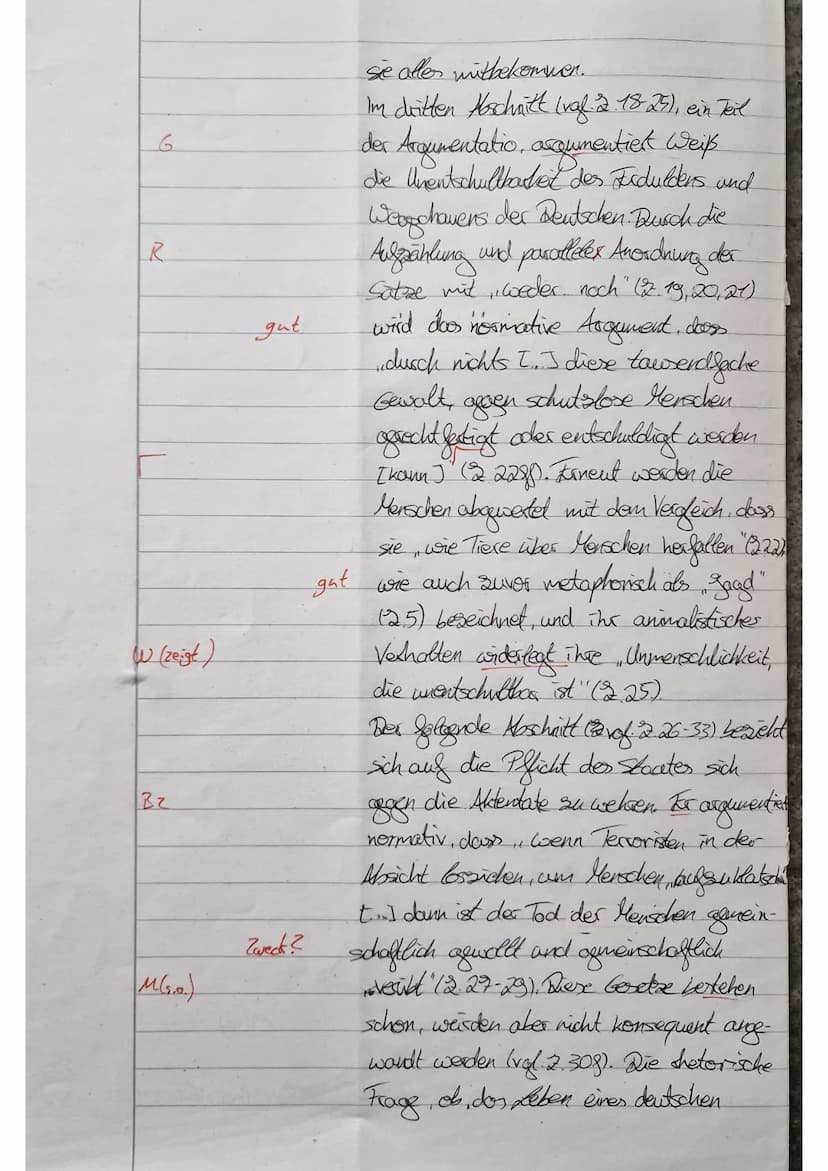 sie alles mitbekommen.
Im dritten Abschnitt (vgl. Z. 18-25), ein Teil
G der Argumentatio, argumentiert Weiß
die Unentschultbarkeit des Erduldens und
Wegschauens der Deutschen. Durch die
R Aufzählung und paralleler Anordnung der
Sätze mit „weder noch" (Z. 19, 20, 21)
gut wird das normative Argument, dass
„durch nichts [...] diese tausendfache
Gewalt, gegen schutzlose Menschen
gerechtfertigt oder entschuldigt werden
Γ [kann]" (Z. 22ff). Erneut werden die
Menschen abgewertet mit dem Vergleich, dass
sie „wie Tiere über Menschen herfallen" (Z.22),
gut wie auch zuvor metaphorisch als „Jagd"
(Z.5) bezeichnet, und ihr animalistisches
W (zeigt) Verhalten widerlegt ihre „Unmenschlichkeit,
die unentschultbar ist" (Z. 25).
Der folgende Abschnitt (vgl. Z. 26-33) bezieht
sich auf die Pflicht des Staates sich
Bz gegen die Aktentate zu wehren. Er argumentiert
normativ, dass „wenn Terroristen in der
Absicht losziehen, um Menschen „aufzuklatschen"
[...] dann ist der Tod der Menschen gemein-
Zweck? schaftlich gewollt und gemeinschaftlich
M(s.o.) verübt" (Z. 27-29). Diese Gesetze bestehen
schon, würden aber nicht konsequent ange-
wandt werden (vgl. Z. 30f). Die rhetorische
Frage, ob „das Leben eines deutschen